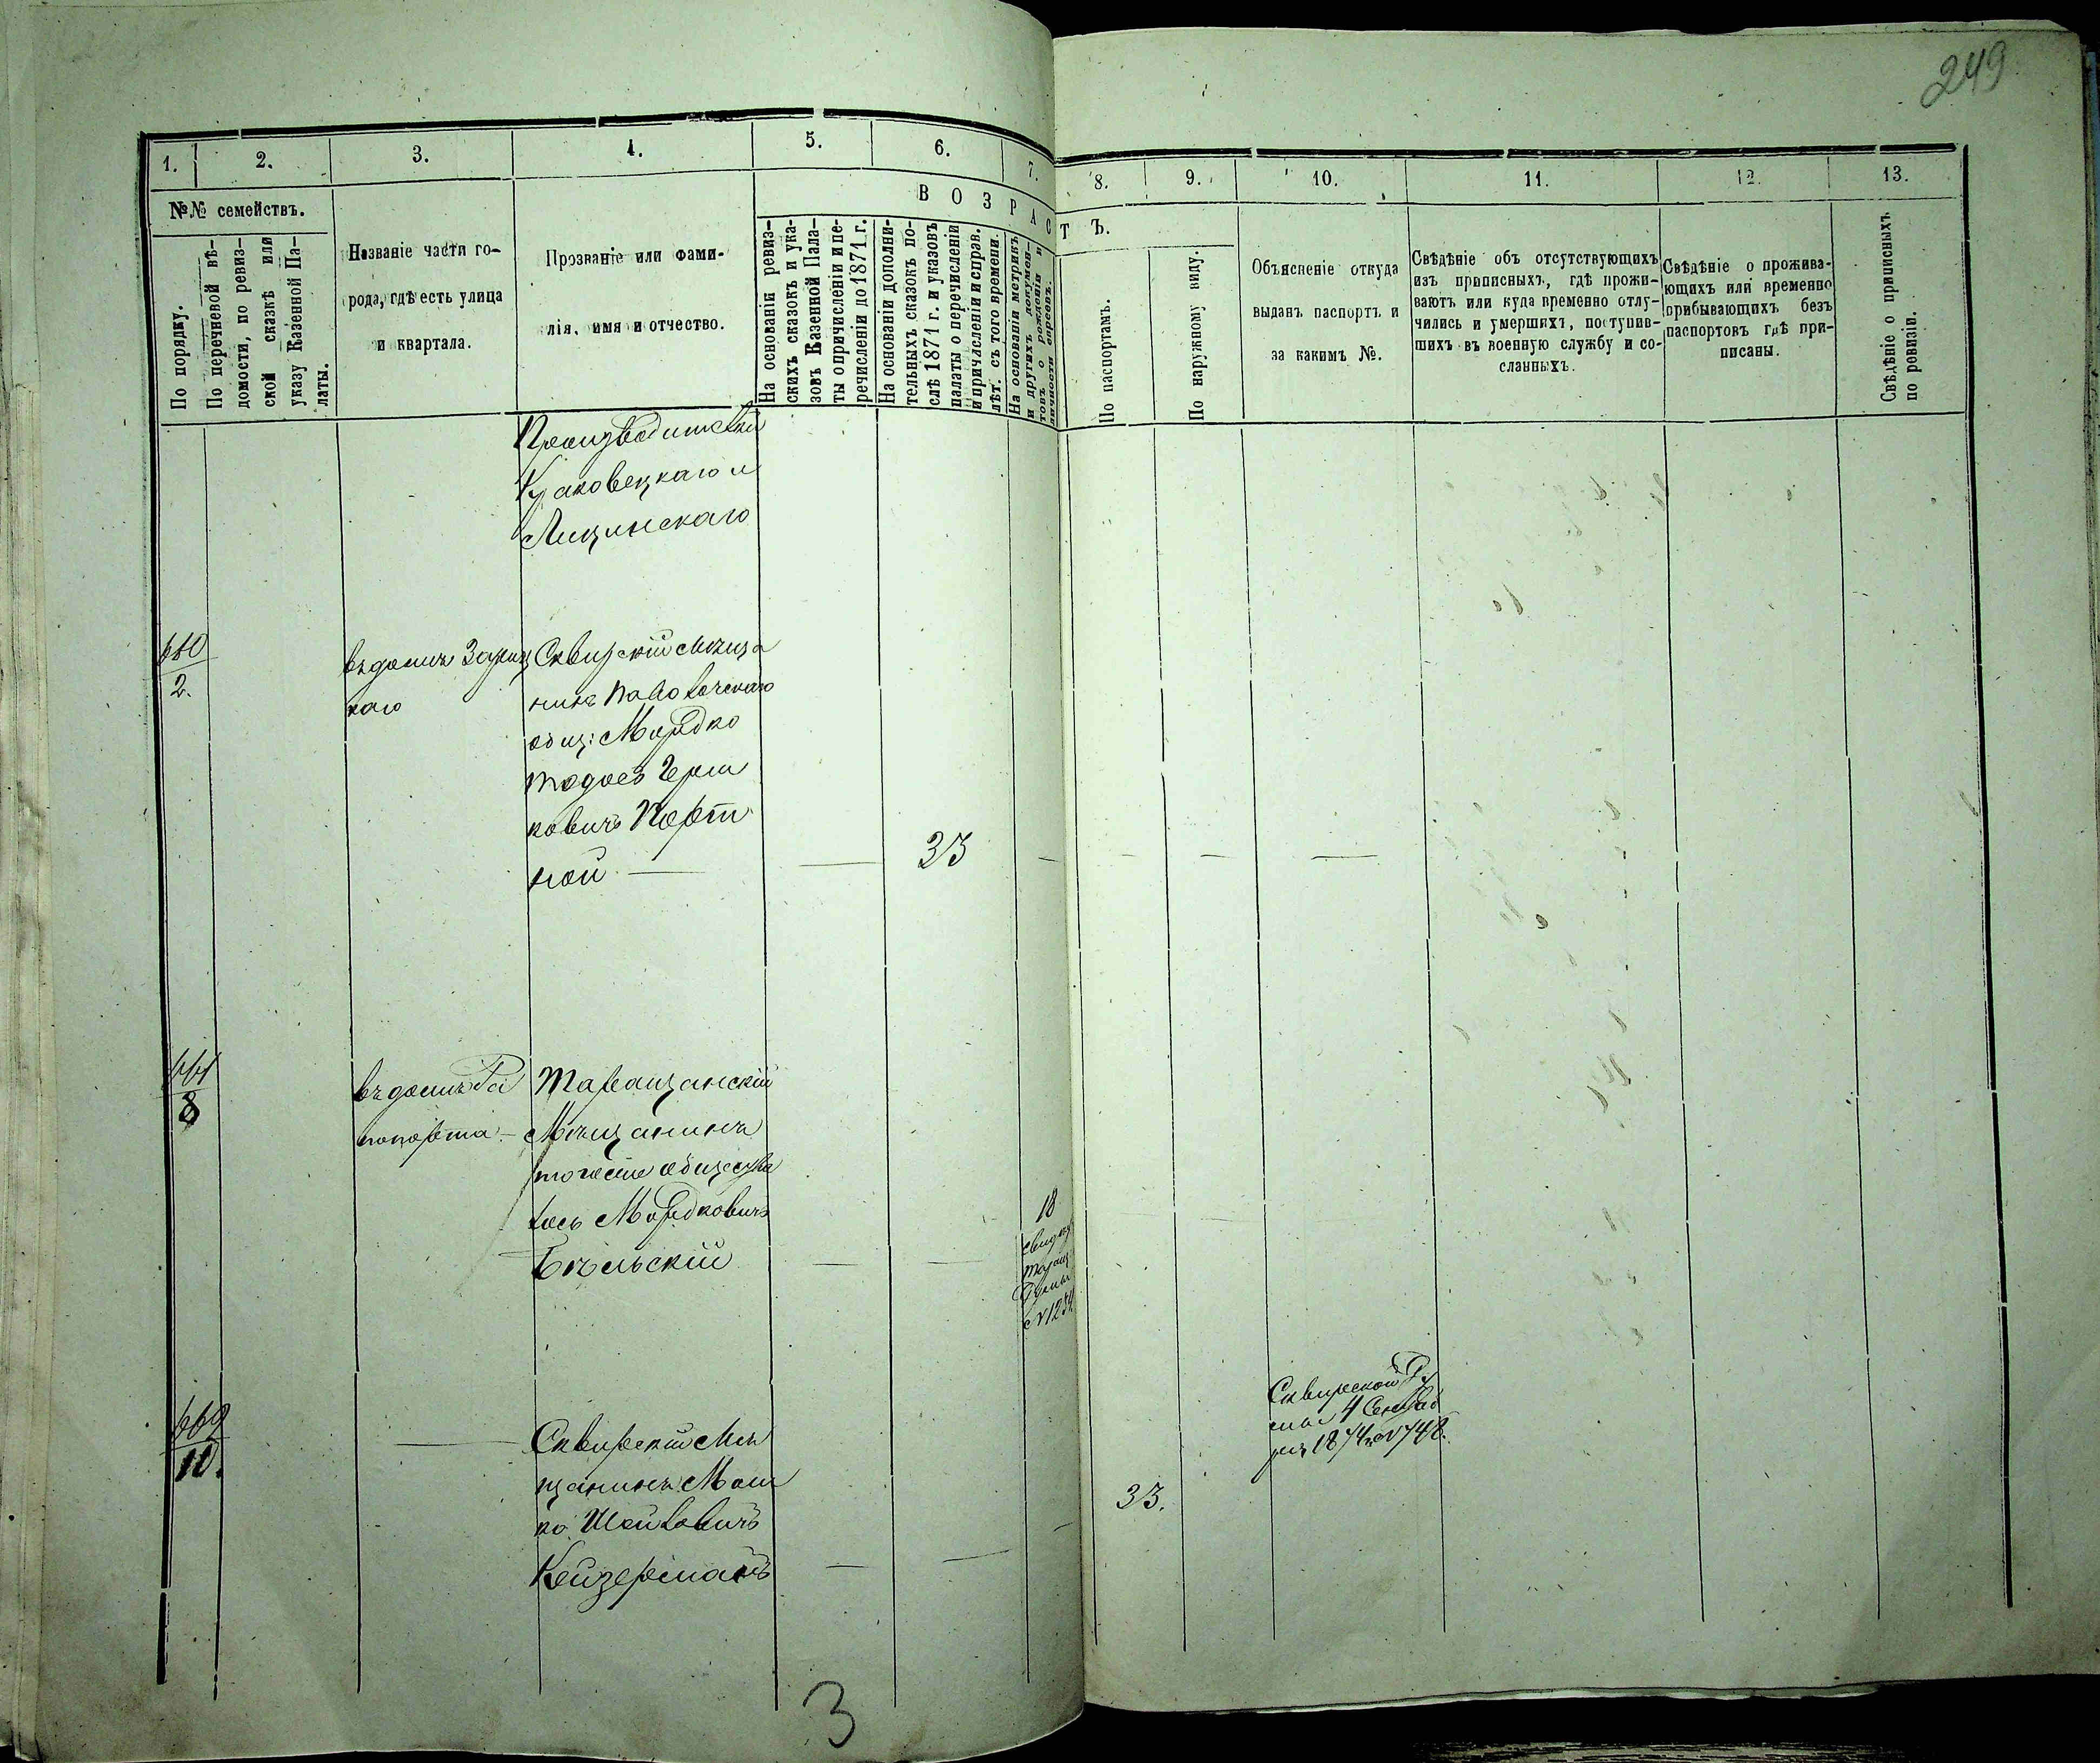 249
1.
2.
3.
4.
5.
6.
7.
8.
9.
10.
11.
12.
13.
№№ семействъ.
По порядку.
По перечневой вѣ-
домости, по ревиз-
ской сказкѣ или
указу Казенной Па-
латы.
Названіе части го-
рода, гдѣ есть улица
и квартала.
Прозваніе или фами-
лія, имя и отчество.
ВОЗРАСТЪ.
На основаніи ревиз-
скихъ сказокъ и ука-
зовъ Казенной Пала-
ты о причисленіи и пе-
речисленіи до 1871 г.
На основаніи дополни-
тельныхъ сказокъ по-
слѣ 1871 г. и указовъ
палаты о перечисленіи
и причисленіи и справ.
лѣт. съ того времени.
На основаніи метрикъ
и другихъ докумен-
товъ о рожденіи и
личности евреевъ.
По паспортамъ.
По наружному виду.
Объясненіе откуда
выданъ паспортъ и
за какимъ №.
Свѣдѣніе объ отсутствующихъ
изъ приписныхъ, гдѣ прожи-
ваютъ или куда временно отлу-
чились и умершихъ, поступив-
шихъ въ военную службу и со-
сланныхъ.
Свѣдѣніе о прожива-
ющихъ или временно
прибывающихъ безъ
паспортовъ гдѣ при-
писаны.
Свѣдѣніе о приписныхъ
по ревизіи.
Краковецкаго и
Лицинскаго
660
2.
въ домѣ
каго
Сквирскій мѣща
нинъ Паволочскаго
общ: Мордко
Герш
ковичъ Порт
ной
23
661
8
въ домѣ Ра
попорта
Таращанскій
Мѣщанинъ
того же общества
Іось Мордковичъ
Бѣльскій
18
Таращ
Думы
№ 1254
662
10.
Сквирскій Мѣ
щанинъ Мош
ко
Кейзерманъ
33.
Сквирской Ду
мы 4 Сентяб
ря 1874 № 748.
3